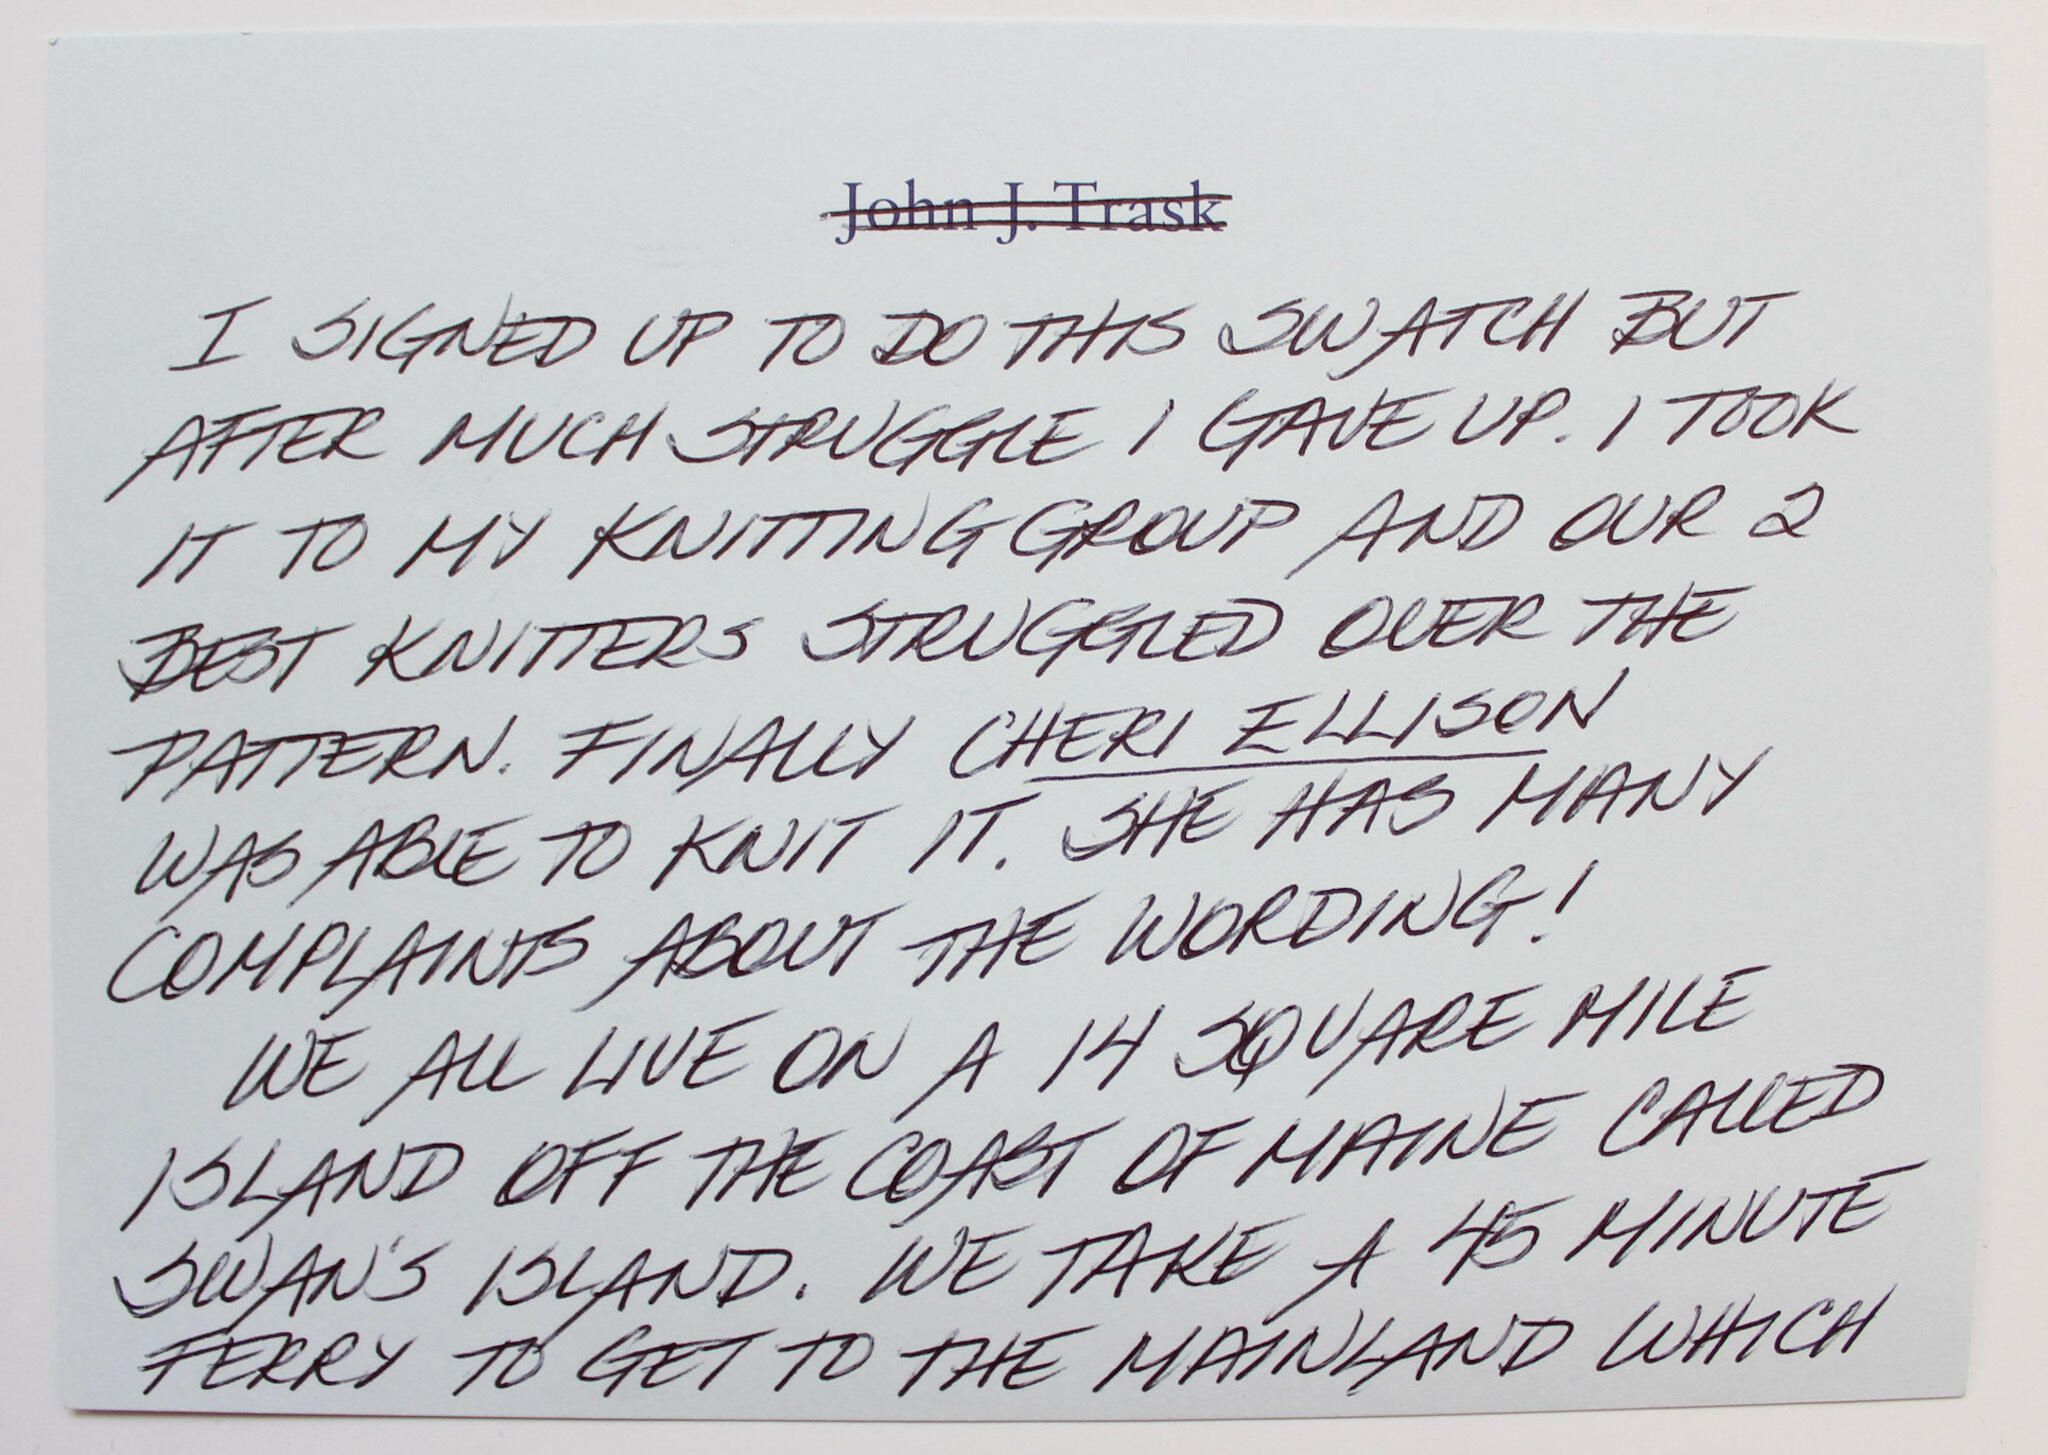 John J. Trask
I SIGNED UP TO DO THIS SWATCH BUT
AFTER MUCH STRUGGLE I GAVE UP. I TOOK
IT TO MY KNITTING GROUP AND OUR 2
BEST KNITTERS STRUGGLED OVER THE
PATTERN. FINALLY CHERI ELLISON
WAS ABLE TO KNIT IT. SHE HAS MANY
COMPLAINTS ABOUT THE WORDING!
WE ALL LIVE ON A 14 SQUARE MILE
ISLAND OFF THE COAST OF MAINE CALLED
SWAN'S ISLAND. WE TAKE A 45 MINUTE
FERRY TO GET TO THE MAINLAND WHICH